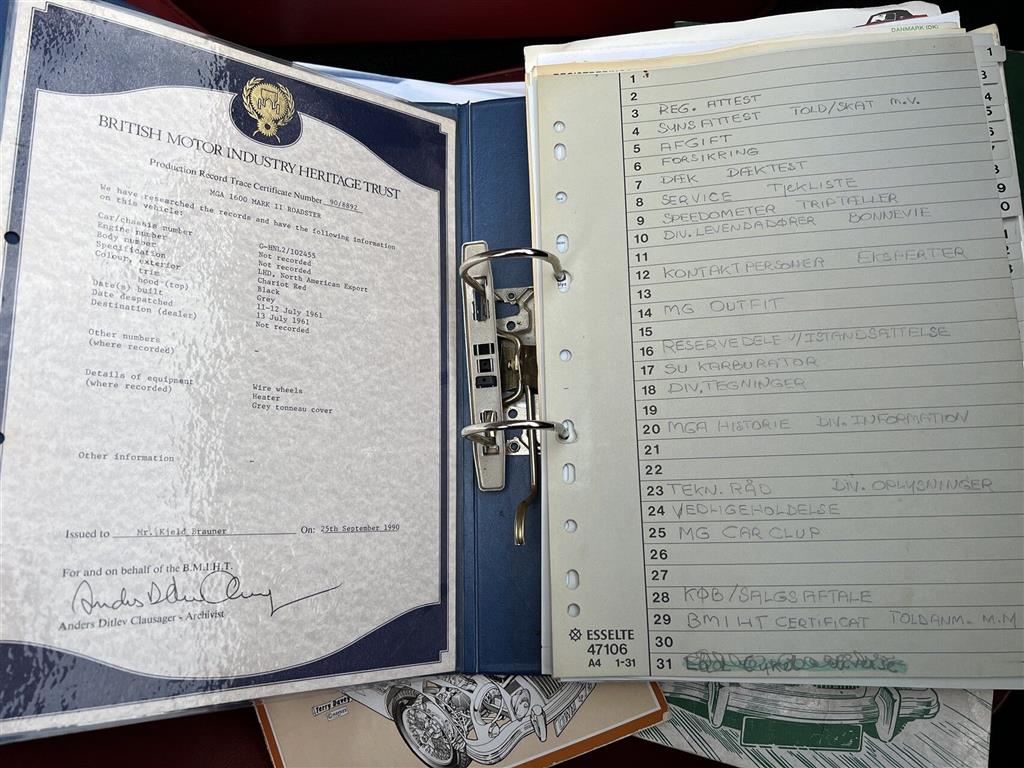 BRITISH MOTOR INDUSTRY HERITAGE TRUST
Production Record Trace Certificate Number 90/8892
MGA 1600 MARK II ROADSTER
We have researched the records and have the following information
on this vehicle:
Car/chassis number G-HNL2/102455
Engine number Not recorded
Body number Not recorded
Specification LHD, North American Export
Colour, exterior Chariot Red
trim Black
hood (top) Grey
Date(s) built 11-12 July 1961
Date despatched 13 July 1961
Destination (dealer) Not recorded
Other numbers -
(where recorded)
Details of equipment Wire wheels
(where recorded) Heater
Grey tonneau cover
Other information -
Issued to Mr. Kjeld Brauner On: 25th September 1990
For and on behalf of the B.M.I.H.T.
Anders Ditlev Clausager - Archivist
DANMARK (DK)
1
2
3 REG. ATTEST
4 SYNSATTEST TOLD/SKAT M.V.
5 AFGIFT
6 FORSIKRING
7 DÆK DÆKTEST
8 SERVICE TJEKLISTE
9 SPEEDOMETER TRIPTÆLLER
10 DIV. LEVENDADØRER BONNEVIE
11
12 KONTAKTPERSONER EKSPERTER
13
14 MG OUTFIT
15
16 RESERVEDELE V/ISTANDSÆTTELSE
17 SU KARBURATOR
18 DIV. TEGNINGER
19
20 MGA HISTORIE DIV. INFORMATION
21
22
23 TEKN. RÅD DIV. OPLYSNINGER
24 VEDLIGEHOLDELSE
25 MG CAR CLUP
26
27
28 KØB/SALGSAFTALE
29 BMIHT CERTIFICAT TOLDANM. M.M
30
31
ESSELTE
47106
A4 1-31
Terry Davey